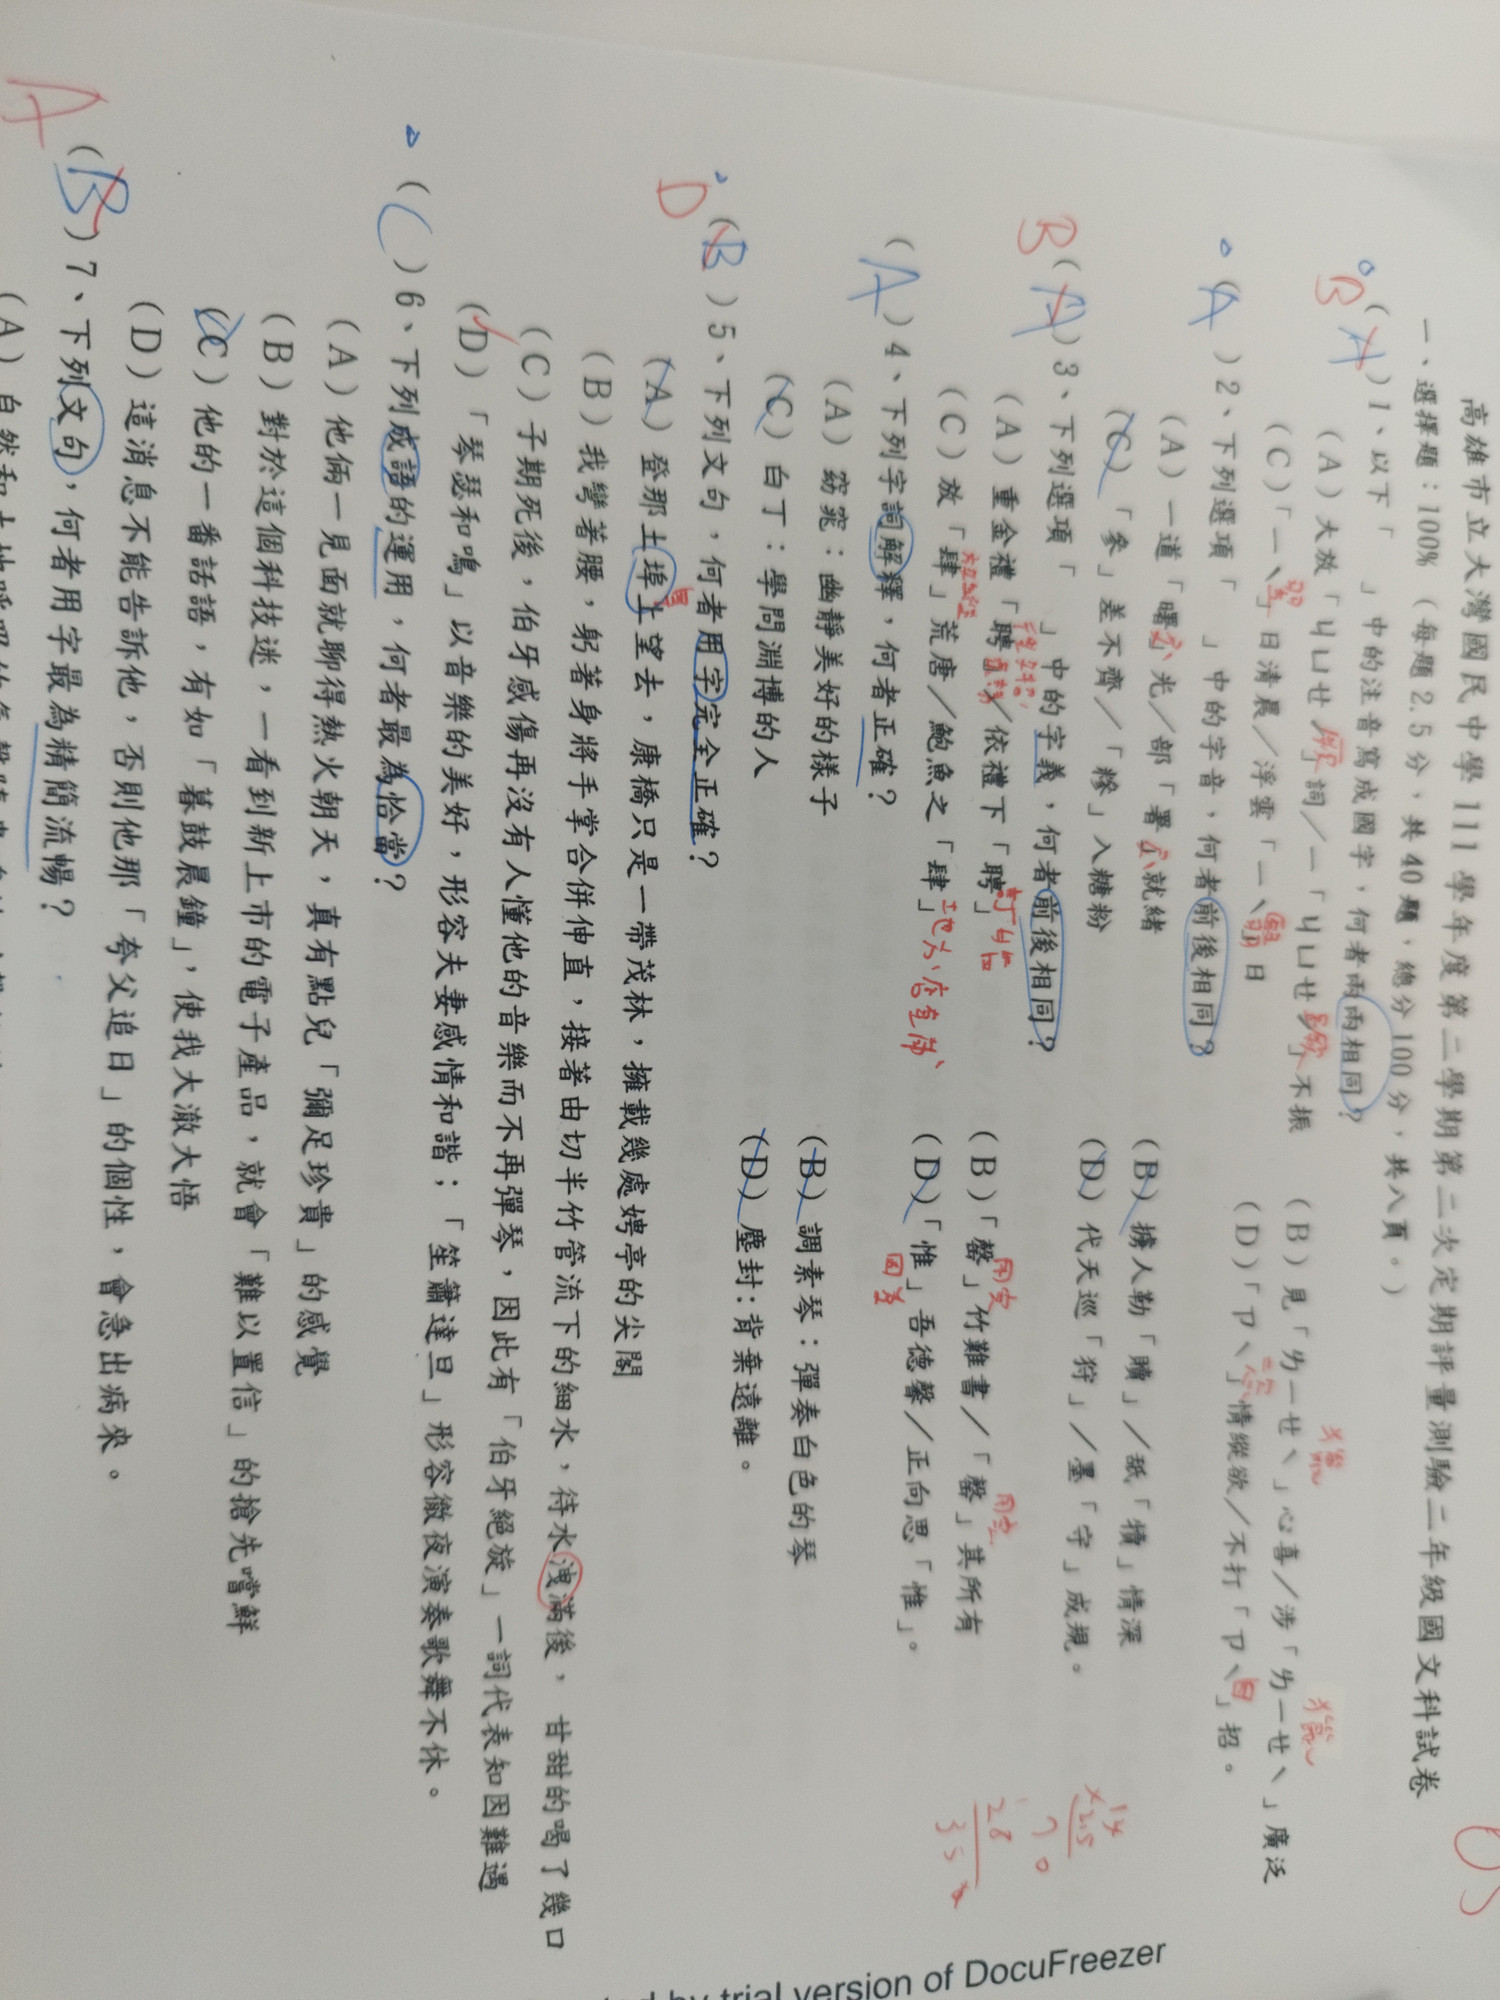 高雄市立大灣國民中學111學年度第二學期第二次定期評量測驗二年級國文科試卷
一、選擇題：100%（每題2.5分，共40題，總分100分，共八頁。）
B
(A)1、以下「　」中的注音寫成國字，何者兩兩相同？
(A)大放「ㄐㄩㄝˊ」詞／一「ㄐㄩㄝˊ」不振
(B)見「ㄌㄧㄝˋ」心喜／涉「ㄌㄧㄝˋ」廣泛
(C)「ㄧˋ」日清晨／浮雲「ㄧˋ」日
(D)「ㄗˋ」情縱欲／不打「ㄗˋ」招。
(A)2、下列選項「　」中的字音，何者前後相同？
(A)一道「曙」光／部「署」就緒
(B)擄人勒「贖」／舐「犢」情深
(C)「參」差不齊／「糝」入糖粉
(D)代天巡「狩」／墨「守」成規。
B
(A)3、下列選項「　」中的字義，何者前後相同？
(A)重金禮「聘」／依禮下「聘」
(B)「罄」竹難書／「罄」其所有
用完
用完
(C)放「肆」荒唐／鮑魚之「肆」
(D)「惟」吾德馨／正向思「惟」。
因為
(A)4、下列字詞解釋，何者正確？
(A)窈窕：幽靜美好的樣子
(B)調素琴：彈奏白色的琴
(C)白丁：學問淵博的人
(D)塵封：背棄遠離。
D
(B)5、下列文句，何者用字完全正確？
(A)登那土埠上望去，康橋只是一帶茂林，擁載幾處娉亭的尖閣
(B)我彎著腰，躬著身將手掌合併伸直，接著由切半竹管流下的細水，待水洩滿後，甘甜的喝了幾口
(C)子期死後，伯牙感傷再沒有人懂他的音樂而不再彈琴，因此有「伯牙絕旋」一詞代表知因難遇
(D)「琴瑟和鳴」以音樂的美好，形容夫妻感情和諧；「笙簫達旦」形容徹夜演奏歌舞不休。
(C)6、下列成語的運用，何者最為恰當？
(A)他倆一見面就聊得熱火朝天，真有點兒「彌足珍貴」的感覺
(B)對於這個科技迷，一看到新上市的電子產品，就會「難以置信」的搶先嚐鮮
(C)他的一番話語，有如「暮鼓晨鐘」，使我大澈大悟
(D)這消息不能告訴他，否則他那「夸父追日」的個性，會急出病來。
A
(B)7、下列文句，何者用字最為精簡流暢？
14
×2.5
70
28
35
ted by trial version of DocuFreezer